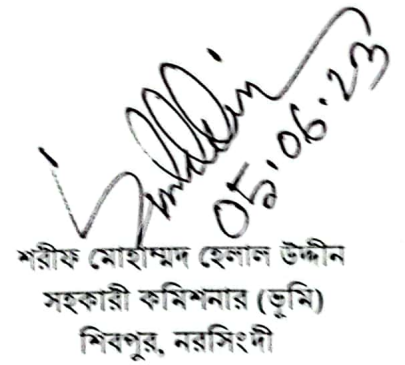 05.06.23
শরীফ মোহাম্মদ হেলাল উদ্দীন
সহকারী কমিশনার (ভূমি)
শিবপুর, নরসিংদী